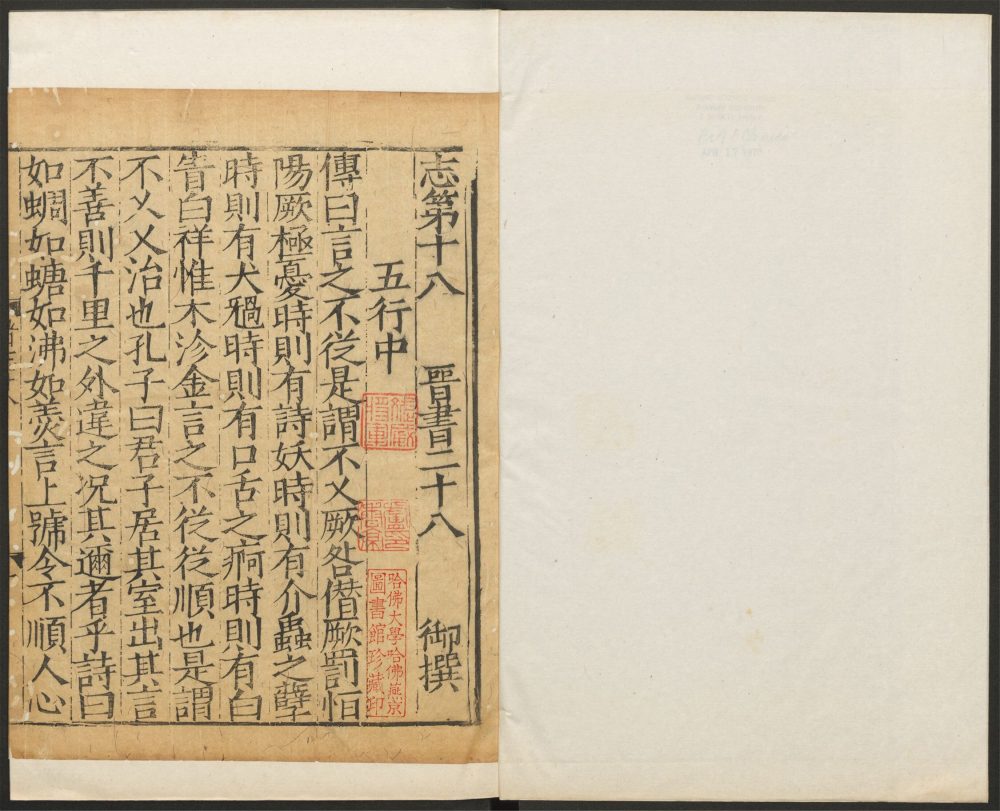 志第十八 晉書二十八 御撰
五行中
傳曰言之不從是謂不乂厥咎僭厥罰恒
陽厥極憂時則有詩妖時則有介蟲之孽
時則有犬禍時則有口舌之痾時則有白
眚白祥惟木沴金言之不從從順也是謂
不乂乂治也孔子曰君子居其室出其言
不善則千里之外違之况其邇者乎詩曰
如蜩如螗如沸如羮言上號令不順人心
哈佛大學哈佛燕京
圖書館珍藏印